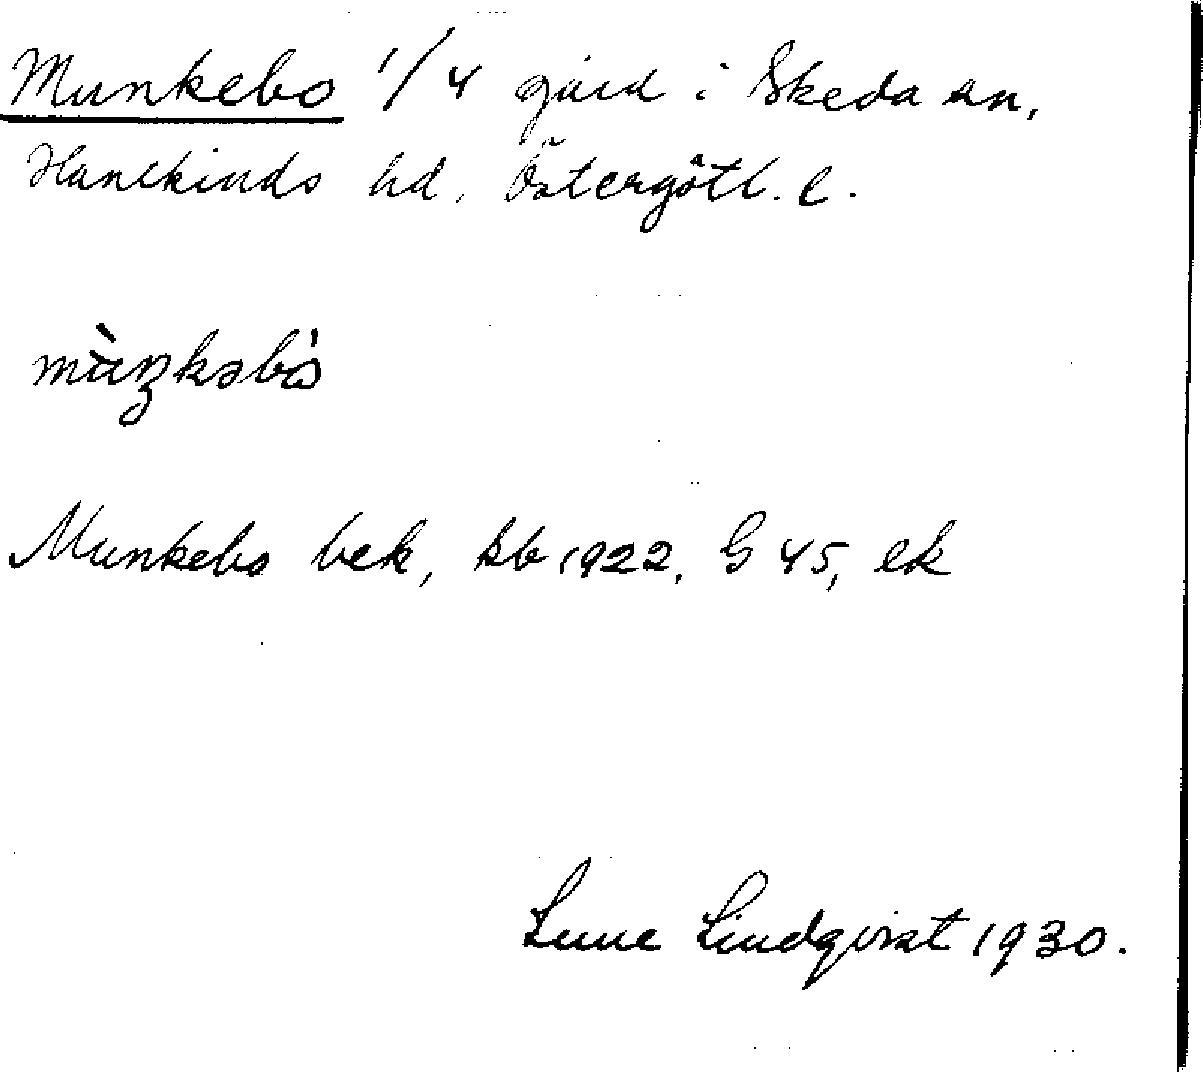 Munkebo 1/4 gård i Skeda sn,
Hanekinds hd. Östergötl. l.
mùŋkəbó
Munkebo bek, kb 1922. G 45, ek
Sune Lindqvist 1930.